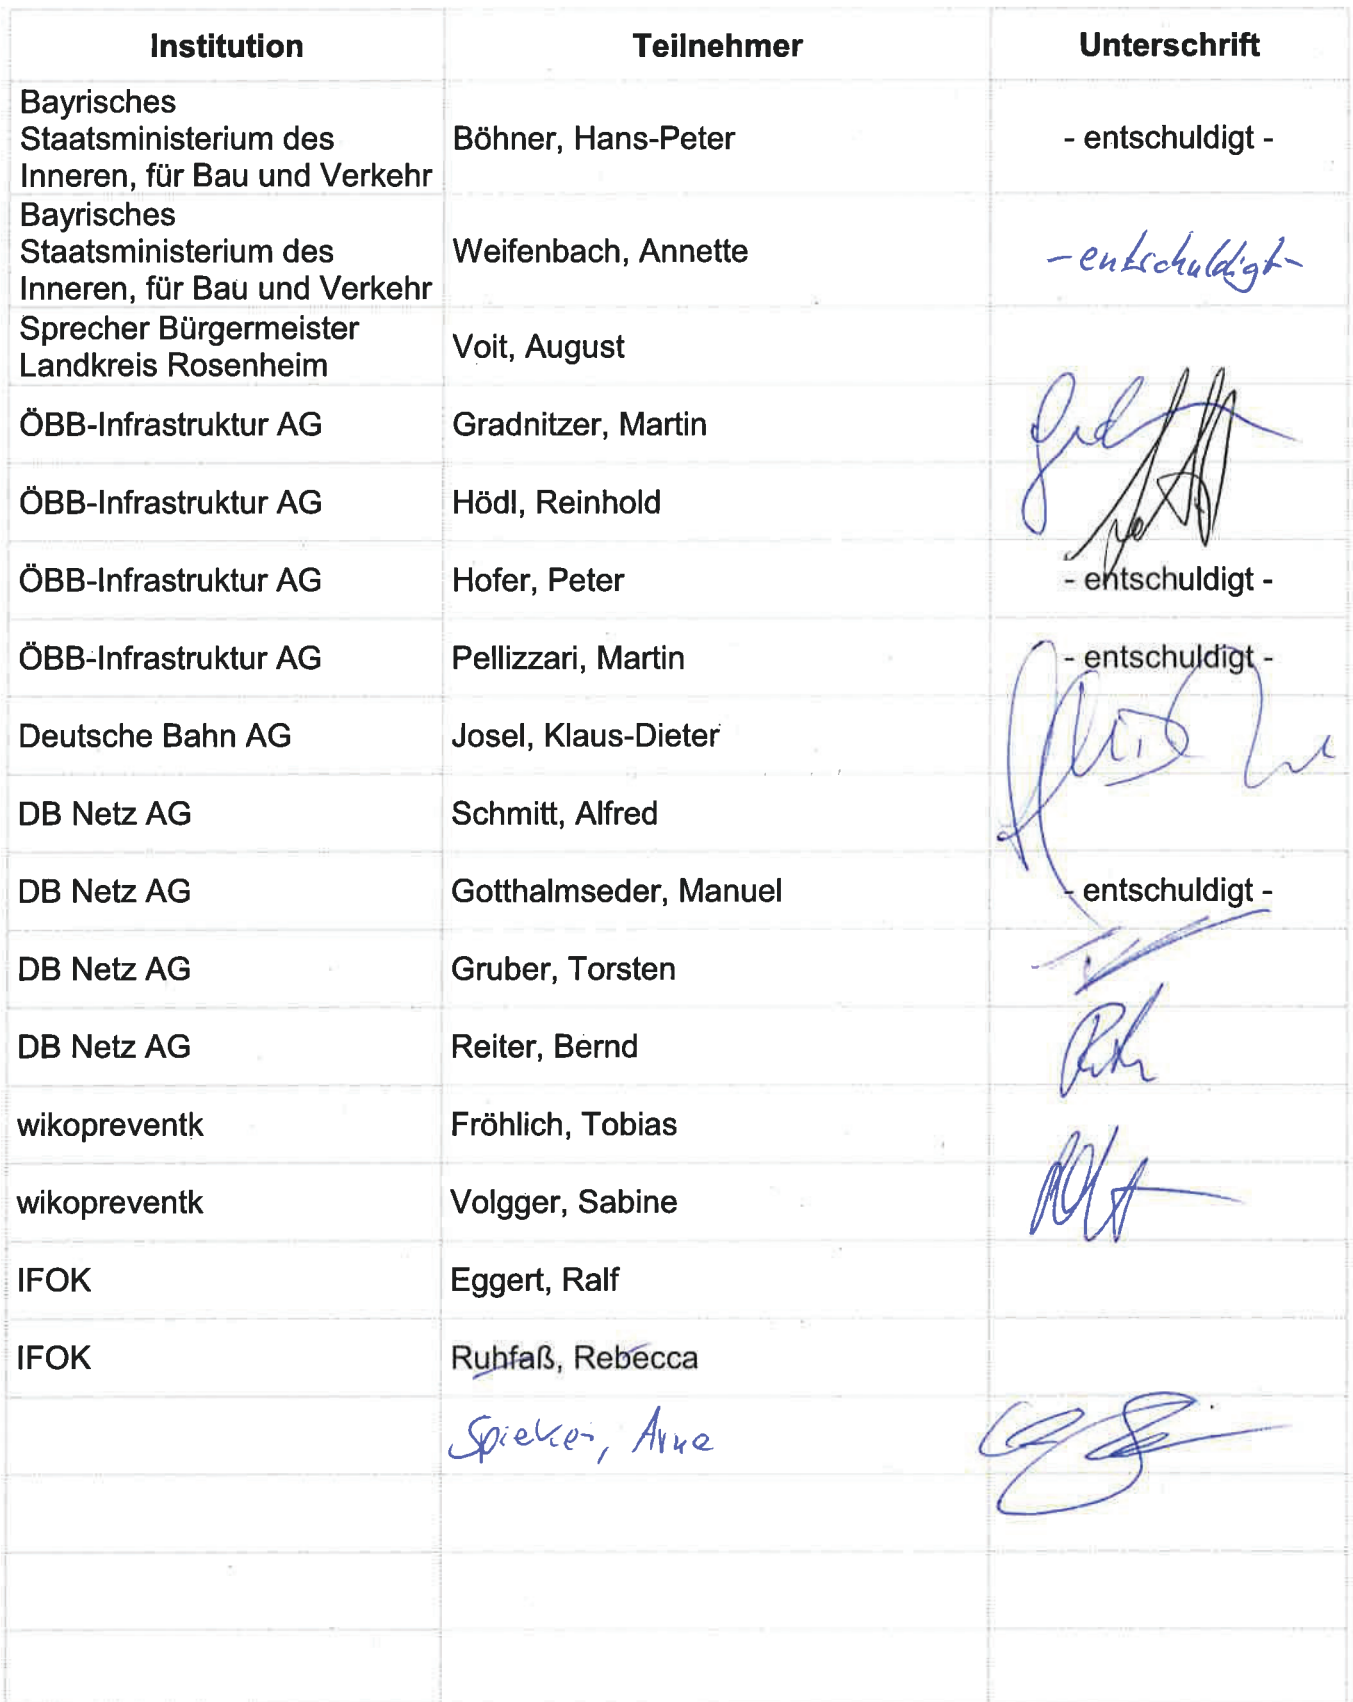 Institution Teilnehmer Unterschrift
Bayrisches
Staatsministerium des
Inneren, für Bau und Verkehr
Böhner, Hans-Peter
- entschuldigt -
Bayrisches
Staatsministerium des
Inneren, für Bau und Verkehr
Weifenbach, Annette
- entschuldigt -
Sprecher Bürgermeister
Landkreis Rosenheim
Voit, August
ÖBB-Infrastruktur AG Gradnitzer, Martin
ÖBB-Infrastruktur AG Hödl, Reinhold
ÖBB-Infrastruktur AG Hofer, Peter - entschuldigt -
ÖBB-Infrastruktur AG Pellizzari, Martin - entschuldigt -
Deutsche Bahn AG Josel, Klaus-Dieter
DB Netz AG Schmitt, Alfred
DB Netz AG Gotthalmseder, Manuel - entschuldigt -
DB Netz AG Gruber, Torsten
DB Netz AG Reiter, Bernd
wikopreventk Fröhlich, Tobias
wikopreventk Volgger, Sabine
IFOK Eggert, Ralf
IFOK Ruhfaß, Rebecca
Spieker, Arne